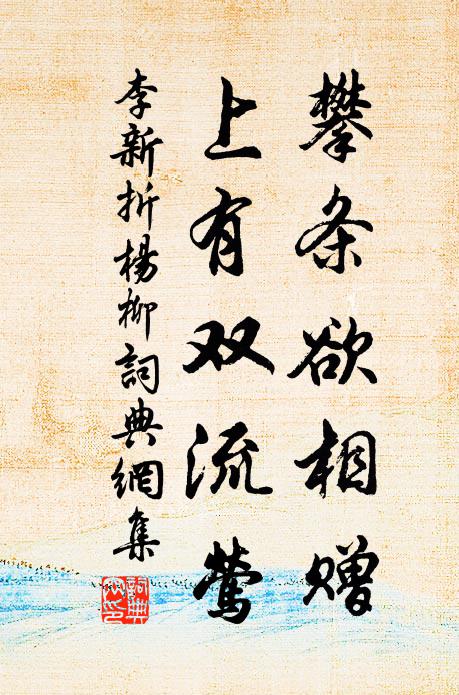 攀条欲相赠
上有双流莺
李新折楊柳詞典網集